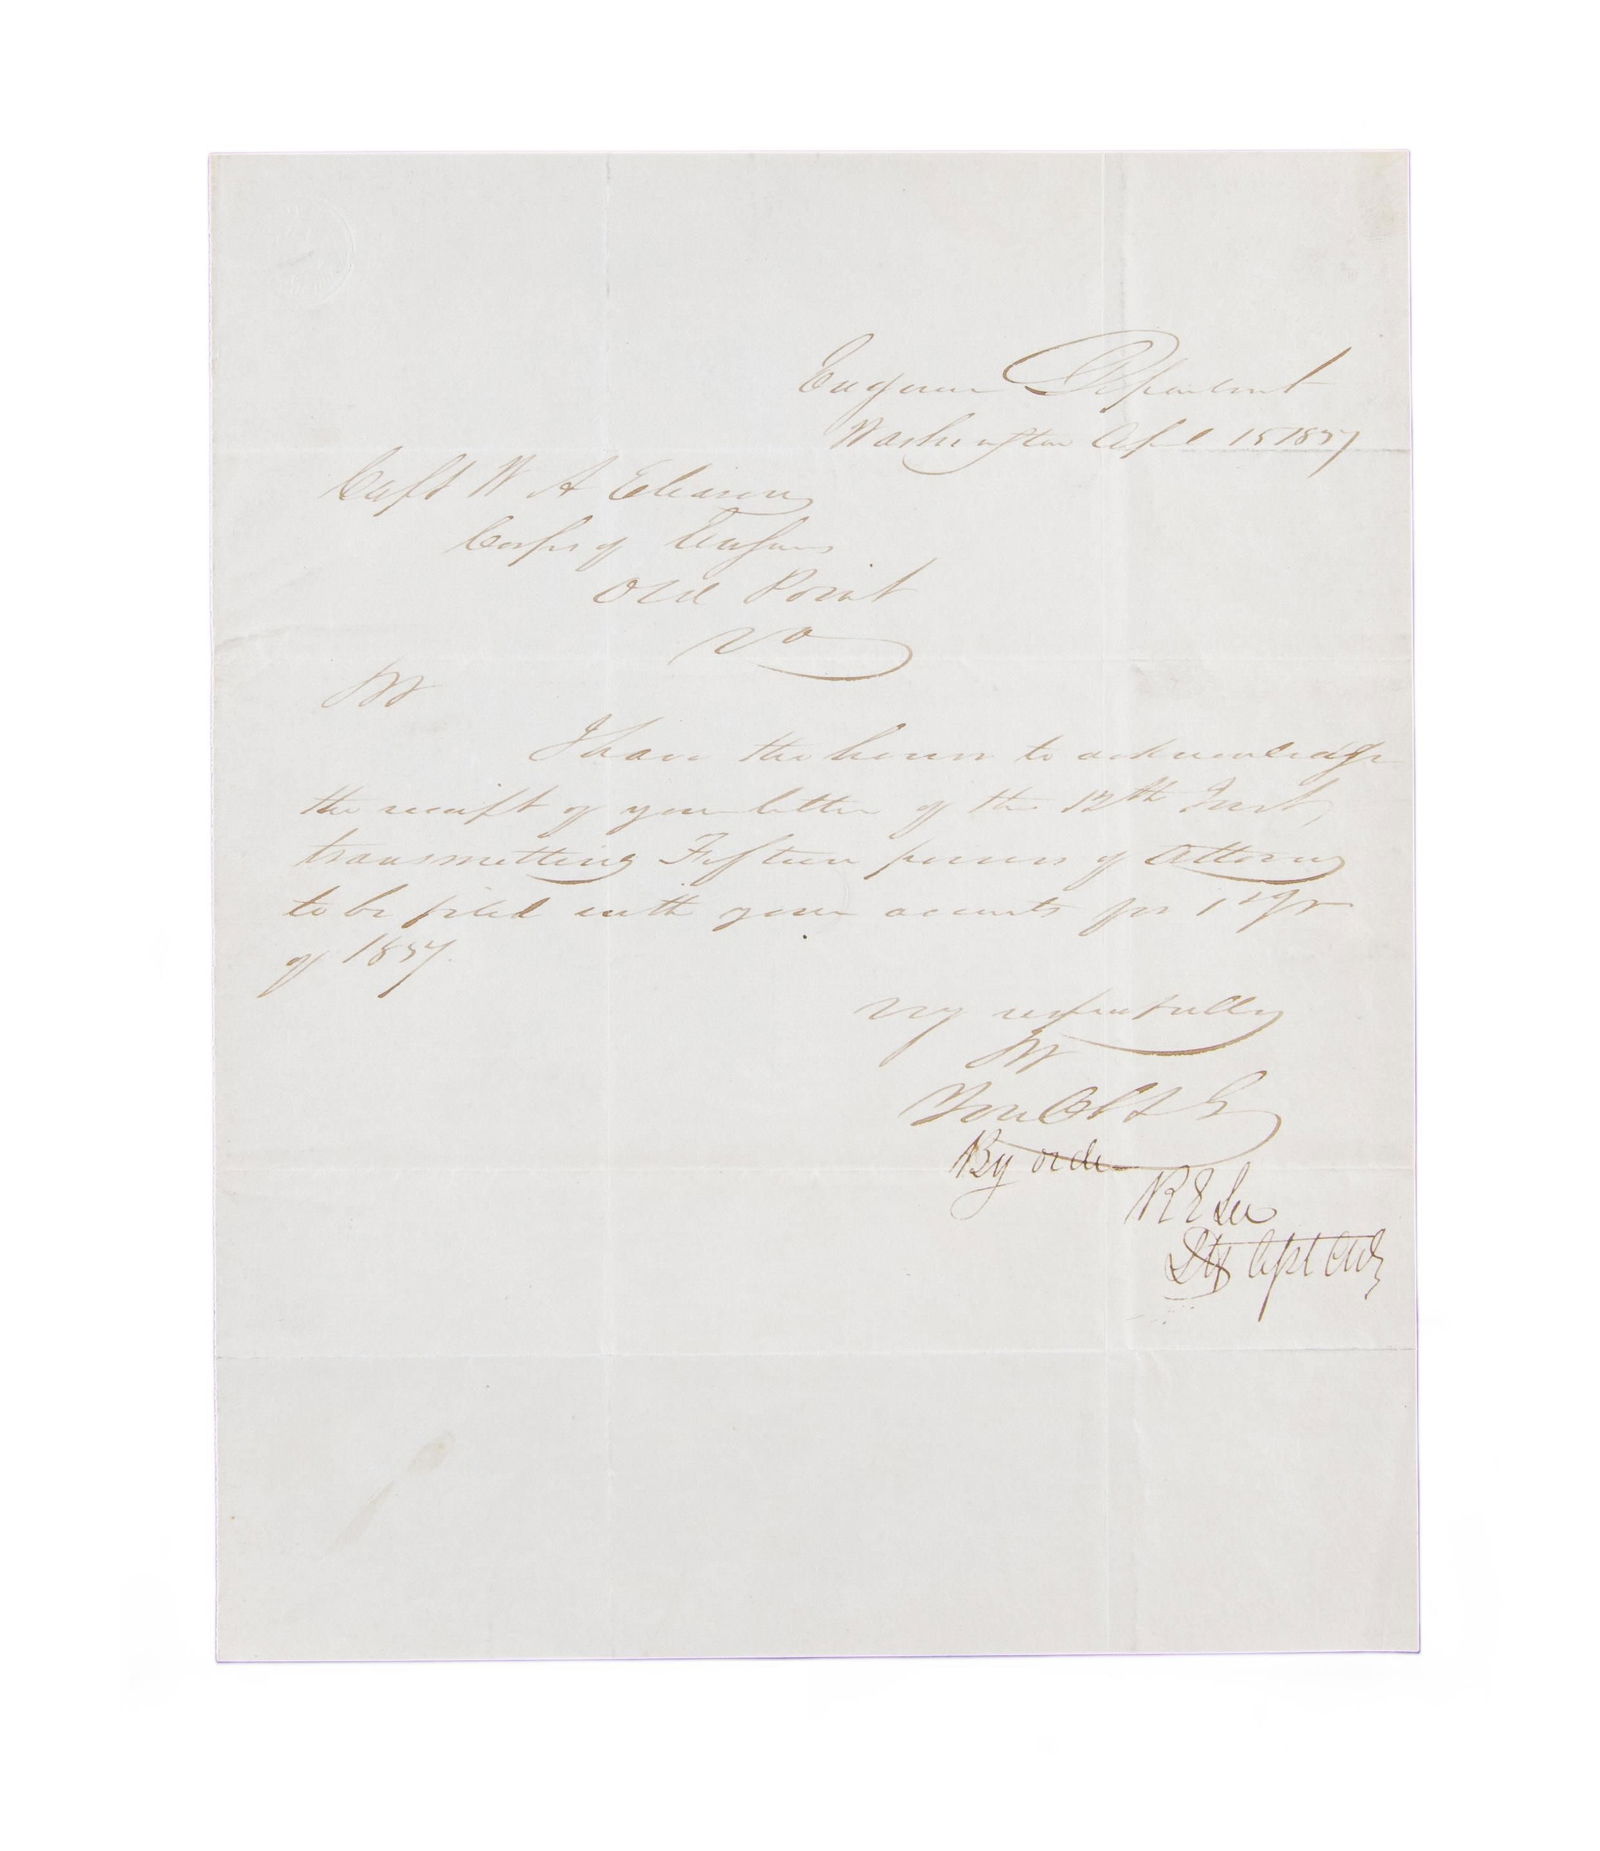 Engineer Department
Washington April 15 1837
Capt W A Eliason
Corps of Engrs
Old Point
Va
Sir
I have the honor to acknowledge
the receipt of your letter of the 12th Inst,
transmitting Fifteen powers of Attorney
to be filed with your accounts for 1st Qr
of 1837.
Very respectfully
Sir
Your Obt S
By order
R E Lee